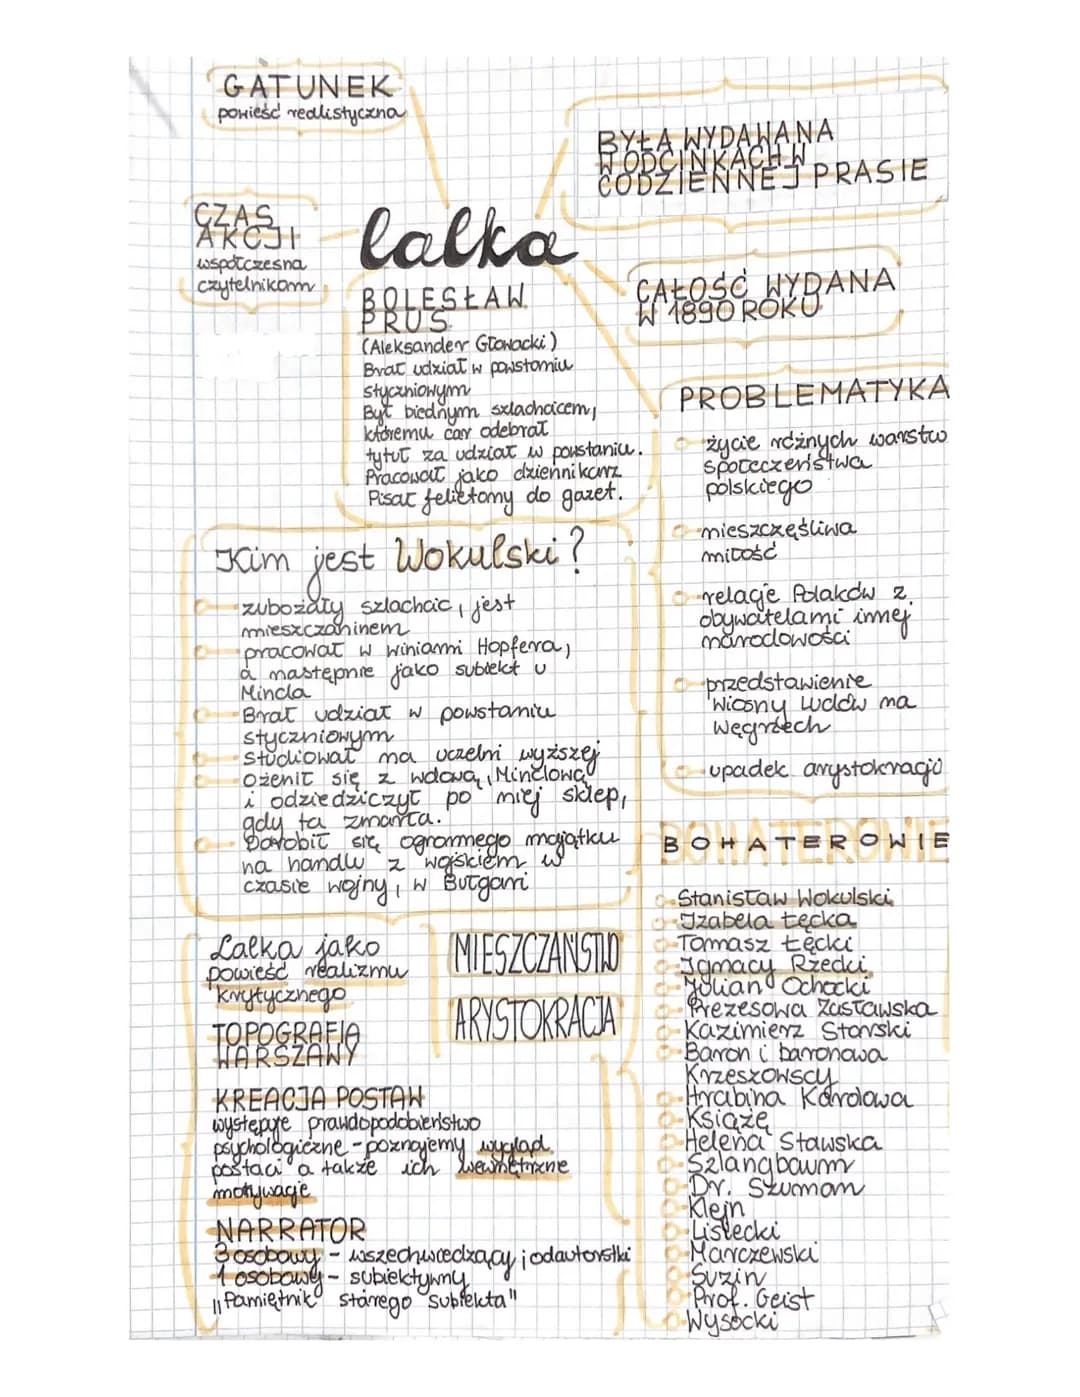 GATUNEK
powieść realistyczna
BYŁA WYDAWANA
W ODCINKACH W
CODZIENNEJ PRASIE
CZAS
AKCJI
współczesna
czytelnikom
lalka
CAŁOŚĆ WYDANA
W 1890 ROKU
BOLESŁAW
PRUS
(Aleksander Głowacki)
Brał udział w powstaniu
styczniowym
Był biednym szlachcicem,
któremu car odebrał
tytuł za udział w powstaniu.
Pracował jako dziennikarz
Pisał felietony do gazet.
PROBLEMATYKA
życie różnych warstw
społeczeństwa
polskiego
nieszczęśliwa
miłość
relacje Polaków z
obywatelami innej
narodowości
przedstawienie
Wiosny Ludów na
Węgrzech
upadek arystokracji
Kim jest Wokulski?
zubożały szlachcic, jest
mieszczaninem
pracował w winiarni Hopfera,
a następnie jako subiekt u
Mincla
Brał udział w powstaniu
styczniowym
Studiował na uczelni wyższej
Ożenił się z wdową, Minclową
i odziedziczył po niej sklep,
gdy ta zmarła.
Dorobił się ogromnego majątku
na handlu z wojskiem w
czasie wojny, w Bułgarii
BOHATEROWIE
Stanisław Wokulski
Izabela Łęcka
Tomasz Łęcki
Ignacy Rzecki
Julian Ochocki
Prezesowa Zasławska
Kazimierz Starski
Baron i baronowa
Krzeszowscy
Hrabina Karolowa
Książę
Helena Stawska
Szlangbaum
Dr. Szuman
Klejn
Lisiecki
Maruszewski
Suzin
Prof. Geist
Wysocki
Lalka jako
powieść realizmu
krytycznego
MIESZCZAŃSTWO
ARYSTOKRACJA
TOPOGRAFIA
WARSZAWY
KREACJA POSTAW
występuje prawdopodobieństwo
psychologiczne - poznajemy wygląd
postaci a także ich wewnętrzne
motywacje
NARRATOR
3 osobowy - wszechwiedzący i odautorski
1 osobowy - subiektywny
"Pamiętnik starego subiekta"